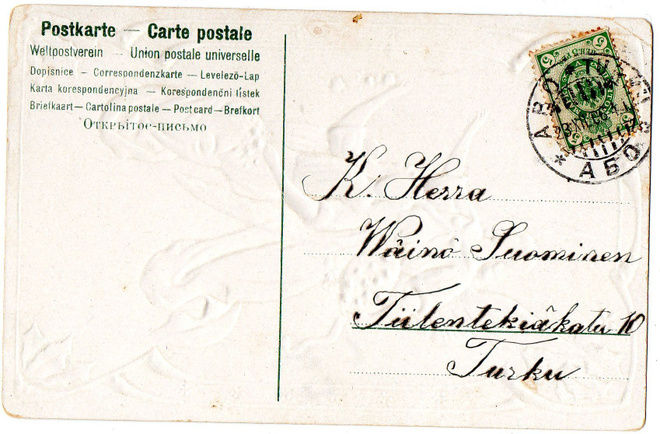 Postkarte — Carte postale
Weltpostverein — Union postale universelle
Dopisnice — Correspondenzkarte — Levelező-Lap
Karta korespondencyjna — Korespondenčni listek
Briefkaart — Cartolina postale — Postcard — Brefkort
Открытое-письмо
5 5
ABO TURKU
* АБО
K. Herra
Wäinö Suominen
Tiilentekiäkatu 10
Turku